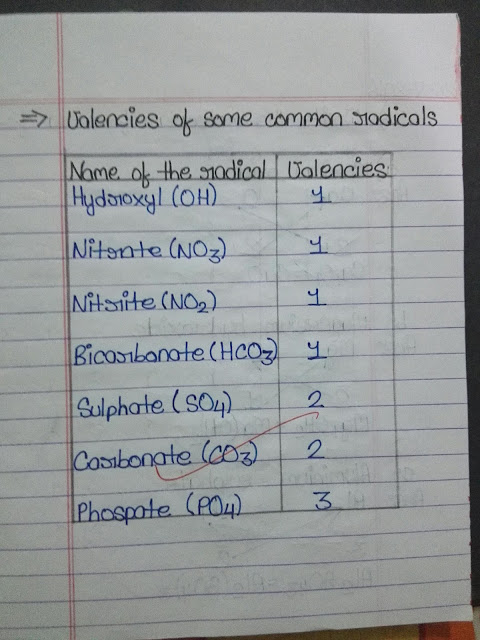 ⇒ Valencies of some common radicals
Name of the radical Valencies
Hydroxyl (OH) 1
Nitrate (NO3) 1
Nitrite (NO2) 1
Bicarbonate (HCO3) 1
Sulphate (SO4) 2
Carbonate (CO3) 2
Phospate (PO4) 3